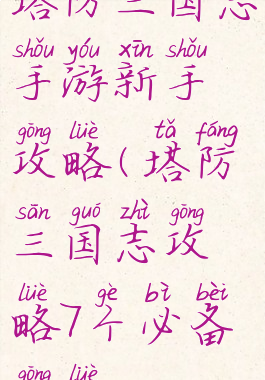 塔防三国志
shǒu yóu xīn shǒu
手游新手
gōng lüè tǎ fáng
攻略(塔防
sān guó zhì gōng
三国志攻
lüè gè bì bèi
略7个必备
gōng lüè